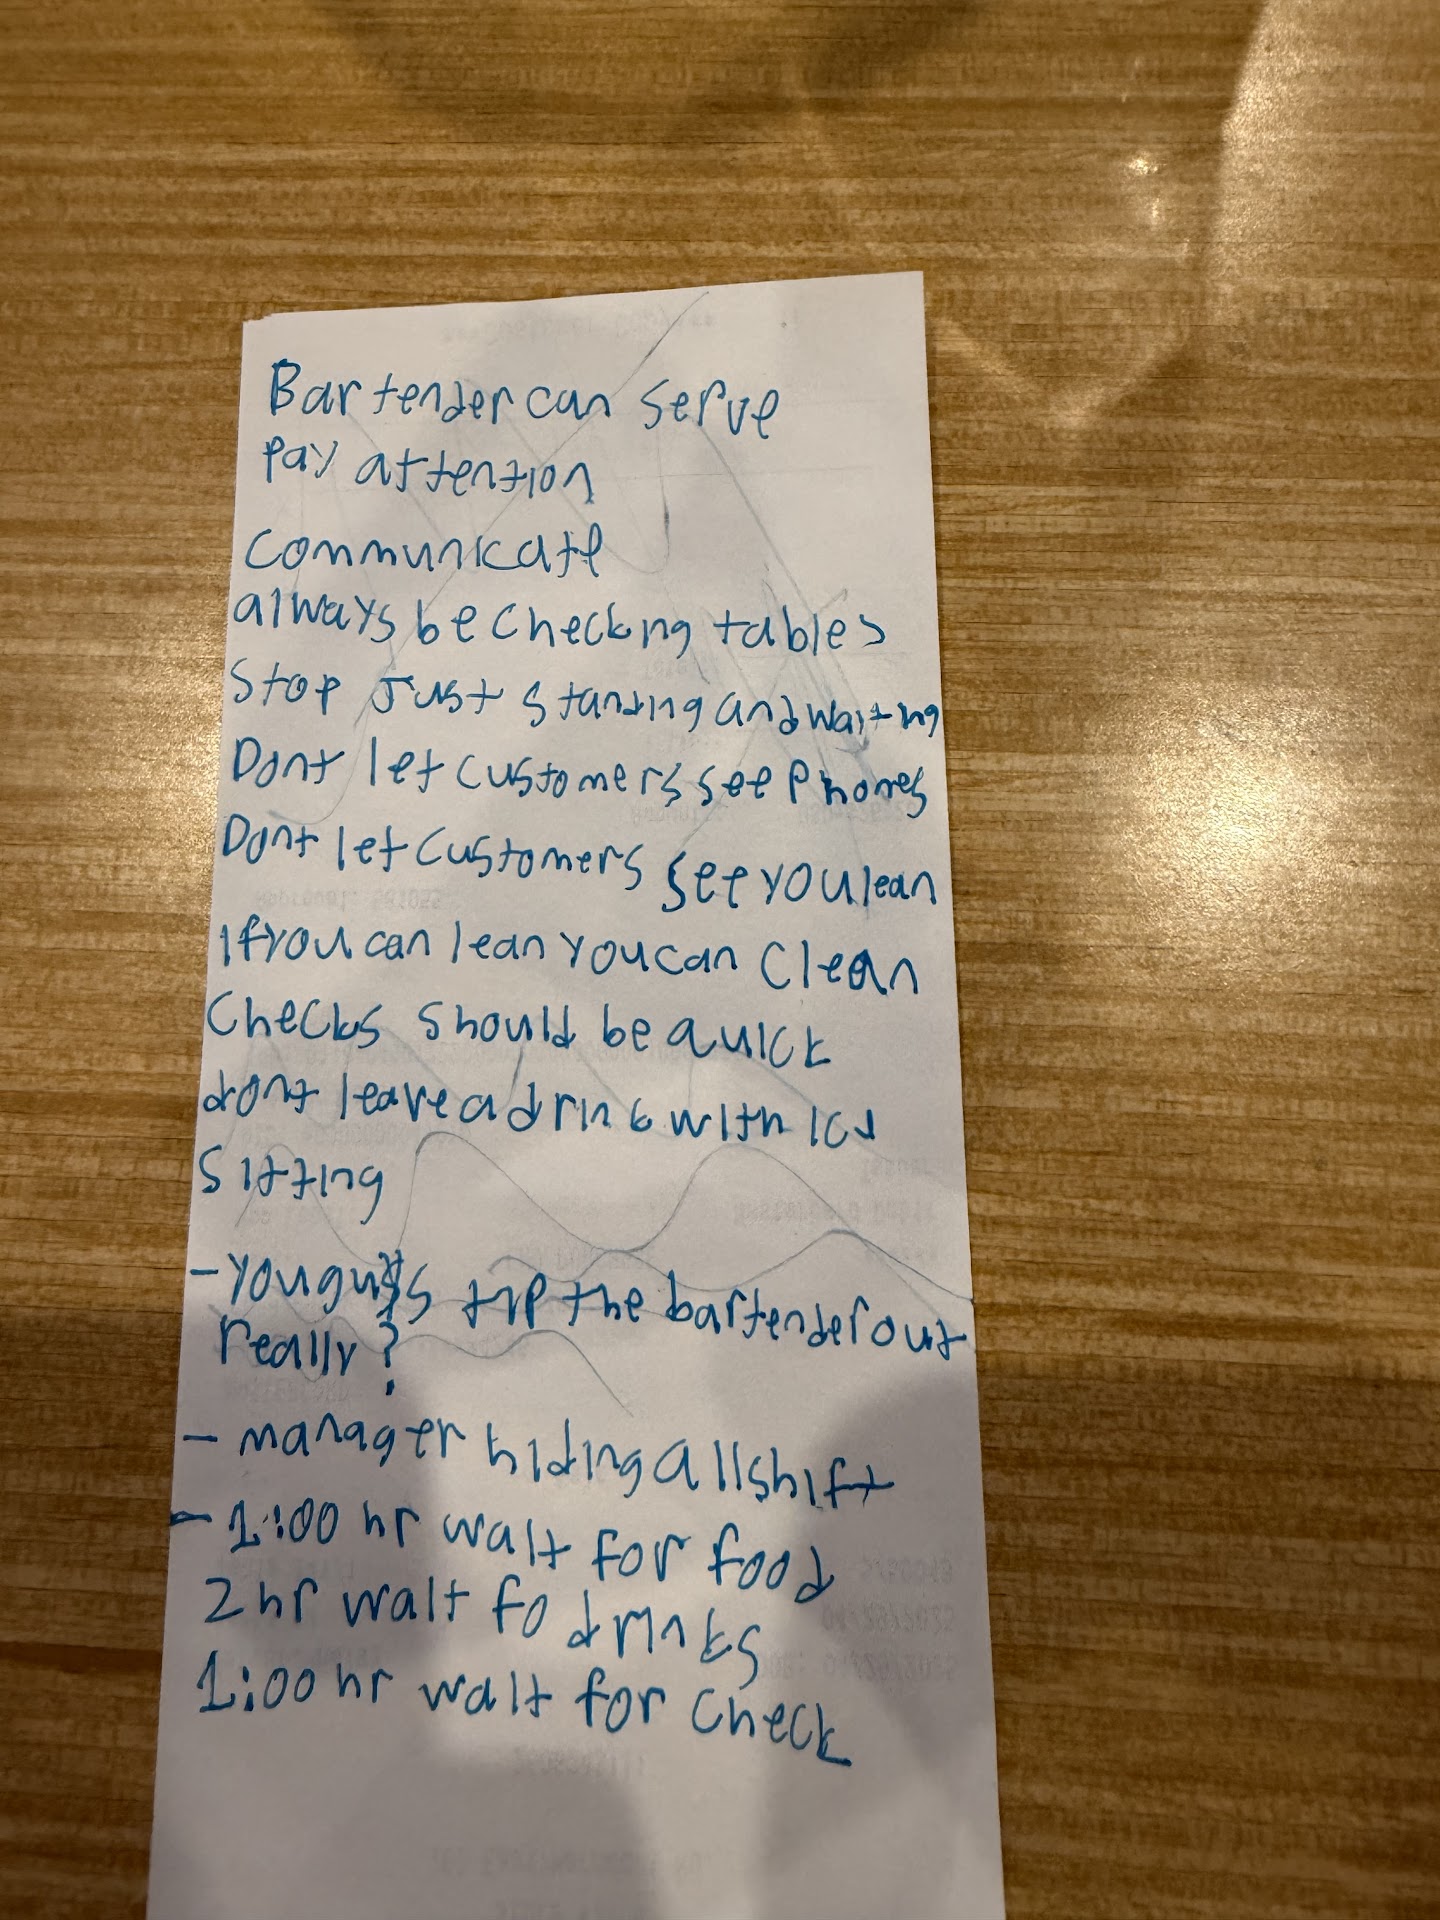 Bartender can serve
Pay attention
Communicate
always be checking tables
Stop Just standing and waiting
Dont let customers see Phones
Dont let customers see you lean
If you can lean you can Clean
Checks should be quick
dont leave a drink with ice
sitting
- You guys tip the bartender out
really?
- manager hiding all shift
- 1:00 hr wait for food
2 hr wait fo drinks
1:00 hr wait for check